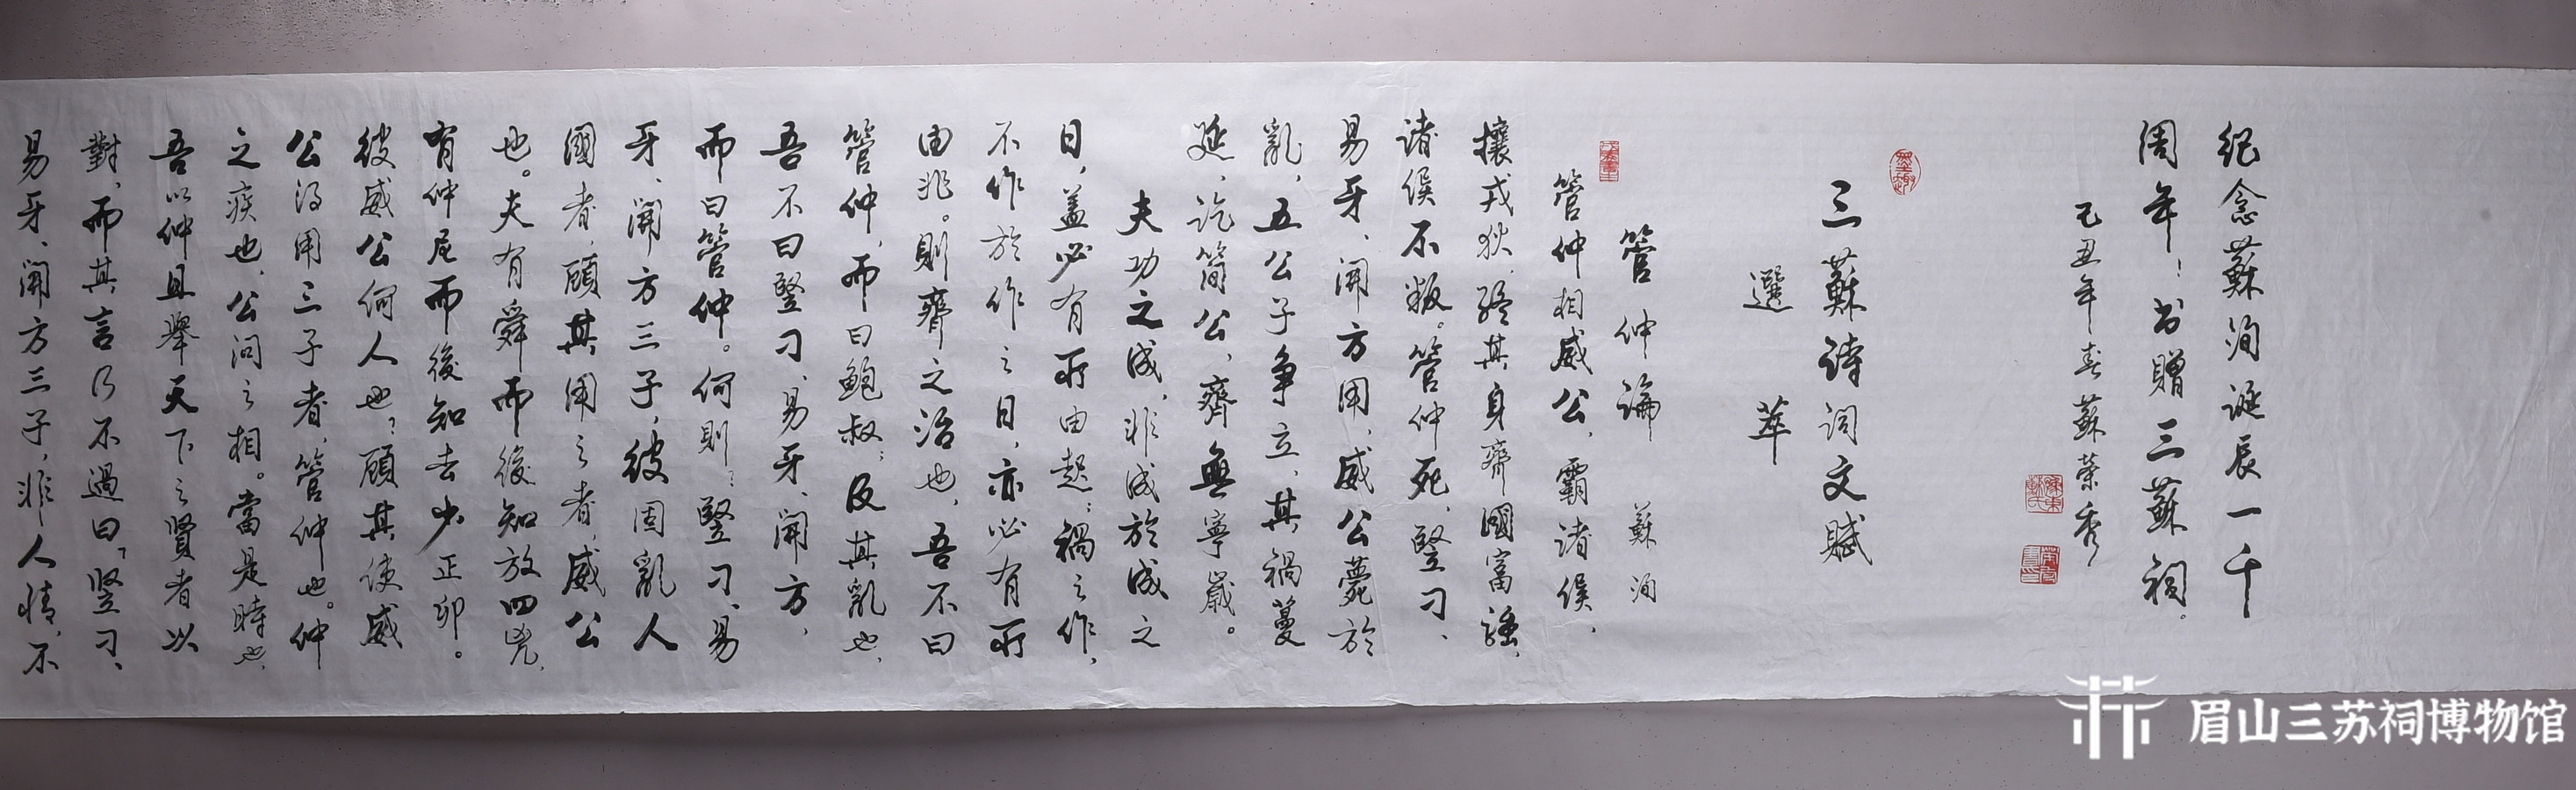 紀念蘇洵誕辰一千
周年！书贈三蘇祠。
己丑年春蘇荣秀
三蘇詩词文赋
選萃
管仲論 蘇洵
管仲相威公，霸诸侯，
攘戎狄，终其身齊國富强，
诸侯不叛。管仲死，竪刁、
易牙、開方用，威公薨於
亂，五公子争立，其禍蔓
延，讫簡公，齊無寧歲。
夫功之成，非成於成之
日，盖必有所由起；禍之作，
不作於作之日，亦必有所
由兆。則齊之治也，吾不曰
管仲，而曰鲍叔；及其亂也，
吾不曰竪刁、易牙、開方，
而曰管仲。何則？竪刁、易
牙、開方三子，彼固亂人
國者，顧其用之者，威公
也。夫有舜而後知放四兇，
有仲尼而後知去少正卯。
彼威公何人也？顧其使威
公得用三子者，管仲也。仲
之疾也，公问之相。當是時也，
吾以仲且舉天下之賢者以
對，而其言乃不過曰“竖刁、
易牙、開方三子，非人情，不
眉山三苏祠博物馆